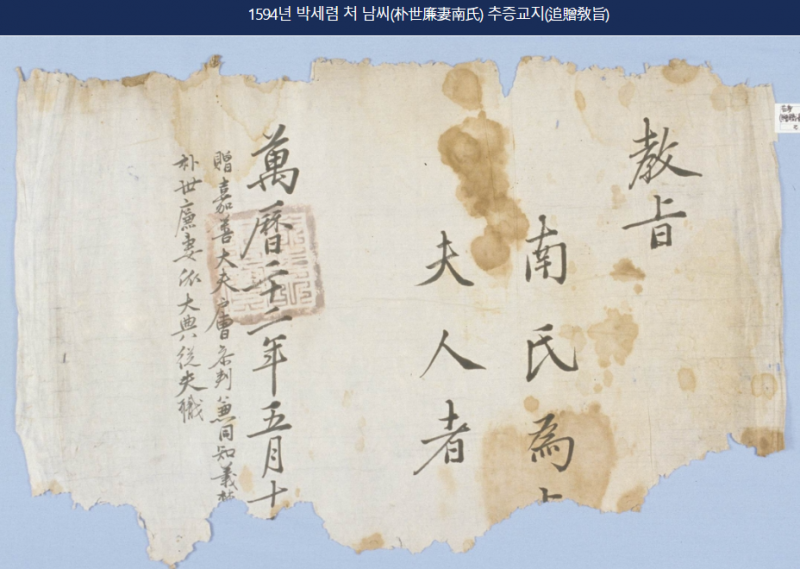 1594년 박세렴 처 남씨(朴世廉妻南氏) 추증교지(追贈敎旨)
敎旨
南氏為
夫人者
萬曆二十二年五月十
贈嘉善大夫戶曹叅判兼同知義
朴世廉妻依大典從夫職